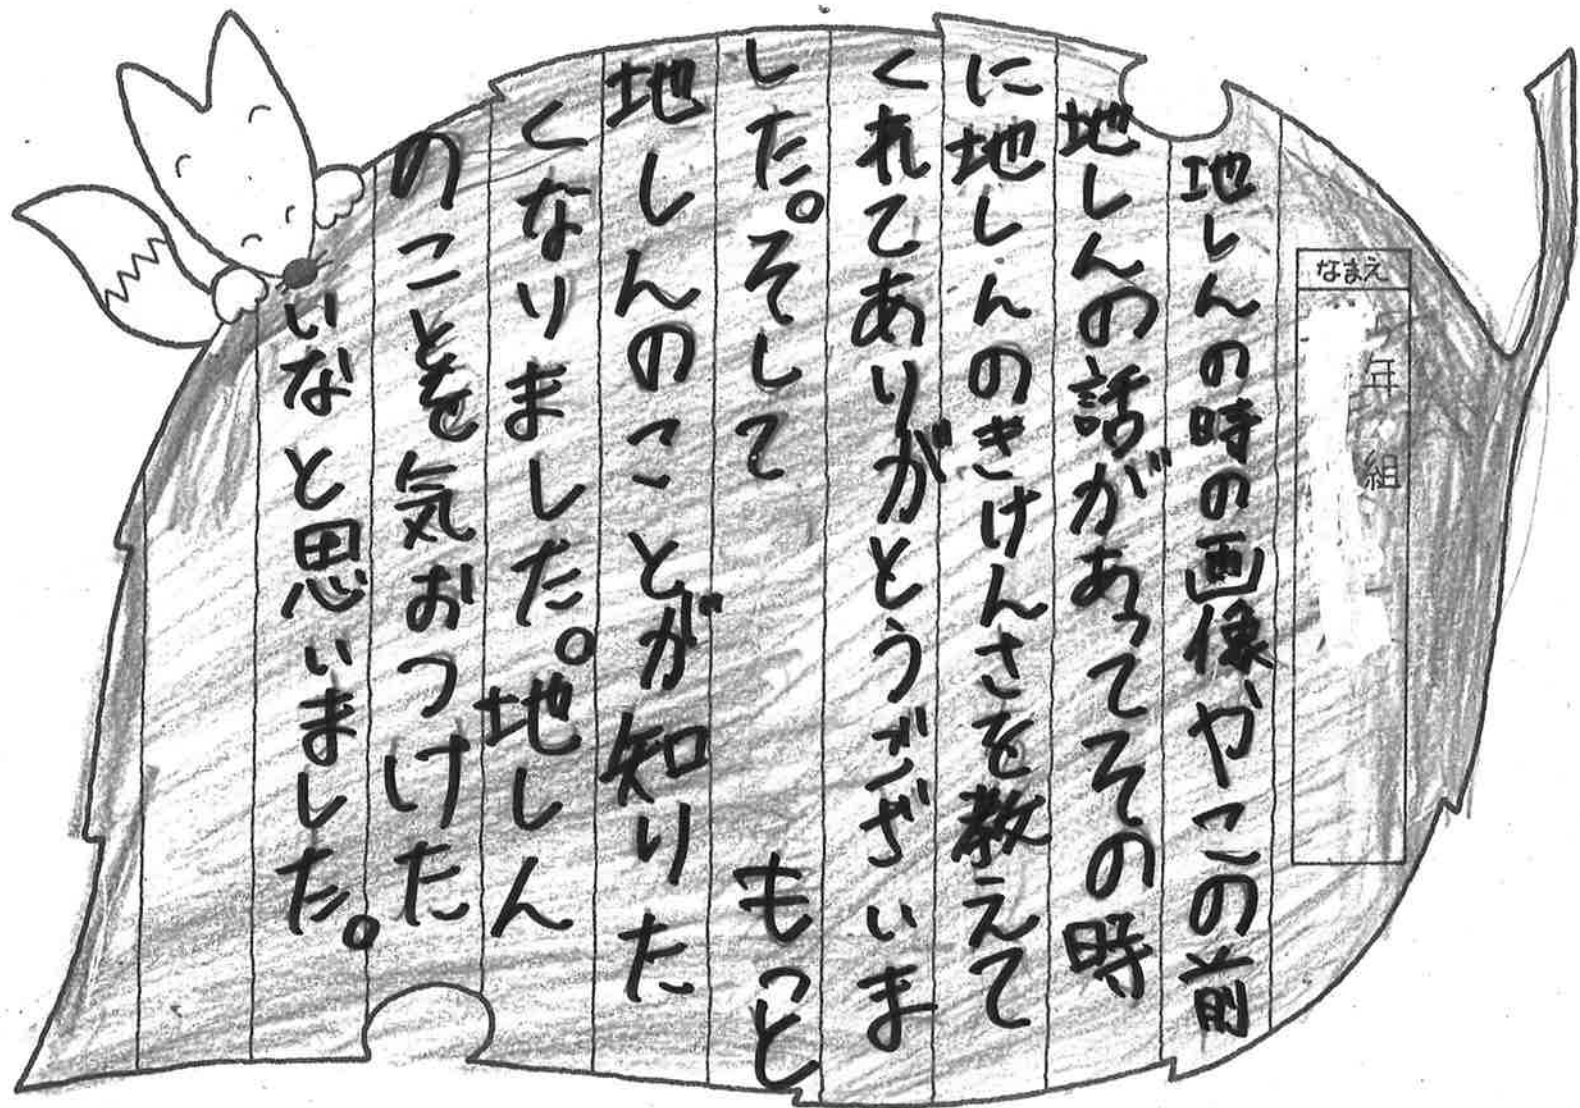 なまえ
年 組
地しんの時の画像やこの前
地しんの話があってその時
に地しんのきけんさを教えて
くれてありがとうございま
した。そして もっと
地しんのことが知りた
くなりました。地しん
のことを気おつけた
いなと思いました。